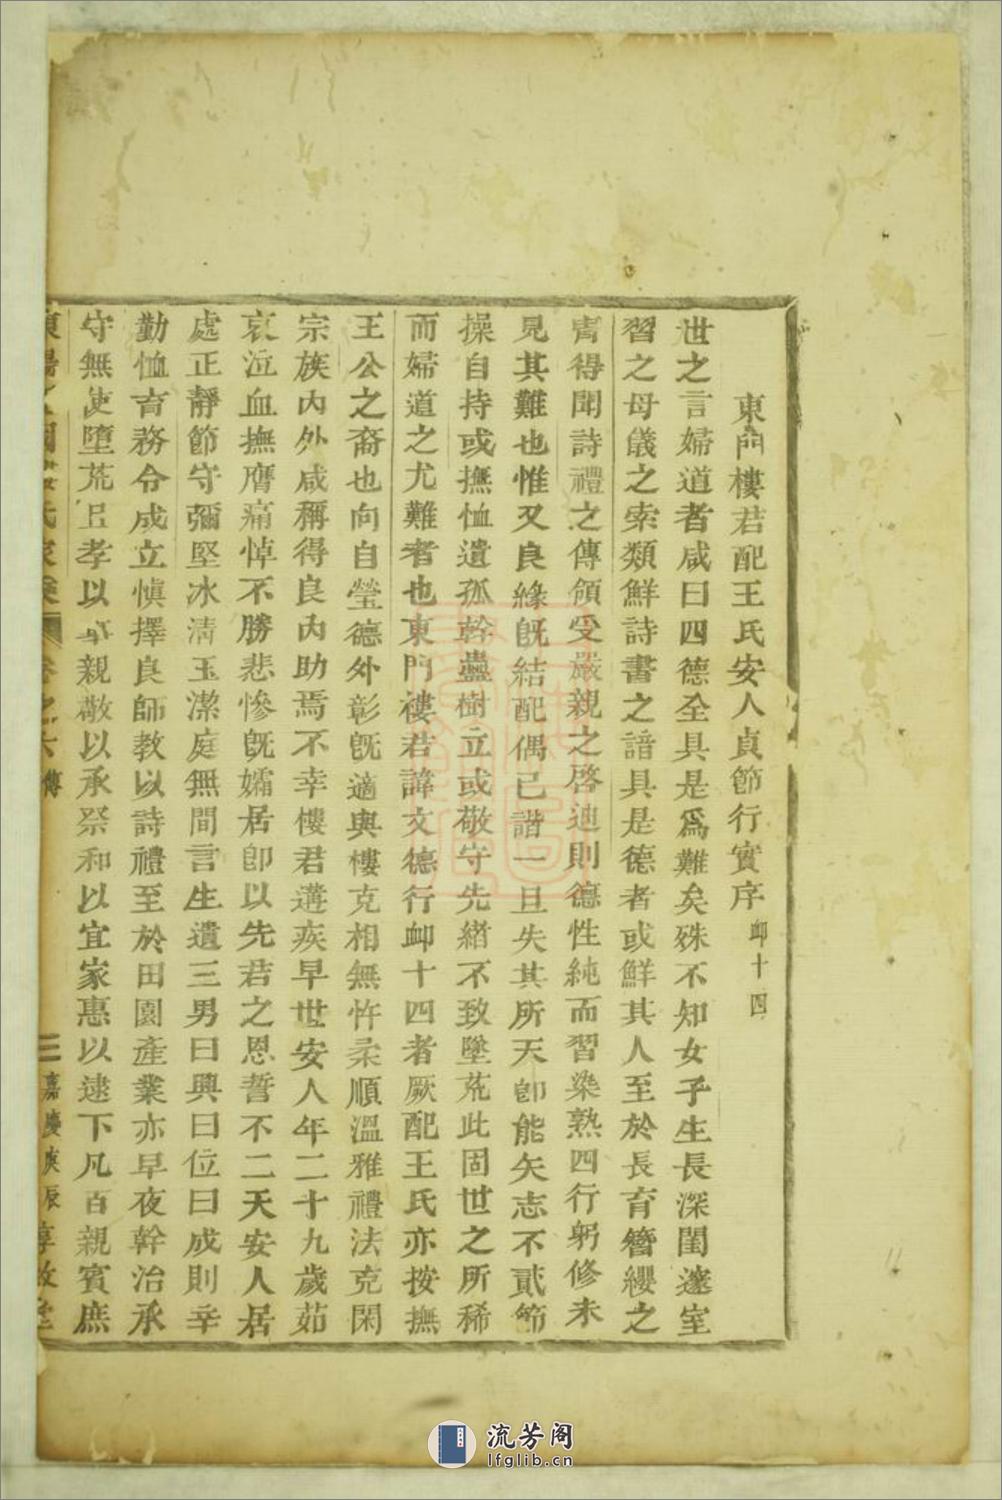 東門樓君配王氏安人貞節行實序 卹十四
世之言婦道者咸曰四德全具是爲難矣殊不知女子生長深閨邃室
習之母儀之索類鮮詩書之諳具是德者或鮮其人至於長育簪纓之
胄得聞詩禮之傳領受嚴親之啓迪則德性純而習染熟四行躬修未
見其難也惟又良緣既結配偶已諧一旦失其所天卽能矢志不貳節
操自持或撫恤遺孤幹蠱樹立或敬守先緒不致墜荒此固世之所稀
而婦道之尤難者也東門褸君諱文德行卹十四者厥配王氏亦按撫
王公之裔也向自瑩德外彰旣適與樓克相無忤柔順溫雅禮法克閑
宗族內外咸稱得良內助焉不幸樓君遘疾早世安人年二十九歲茹
哀泣血撫膺痛悼不勝悲慘旣孀居卽以先君之恩誓不二天安人居
處正靜節守彌堅冰淸玉潔庭無間言生遺三男曰興曰位曰成則辛
勤恤育務令成立愼擇良師教以詩禮至於田園產業亦早夜幹治承
守無使墮荒且孝以事親敬以承祭和以宜家惠以逮下凡百親賓庶
氏家乘 卷之六 傳 三 嘉慶庚辰 惇敘堂
流芳阁
lfglib.cn